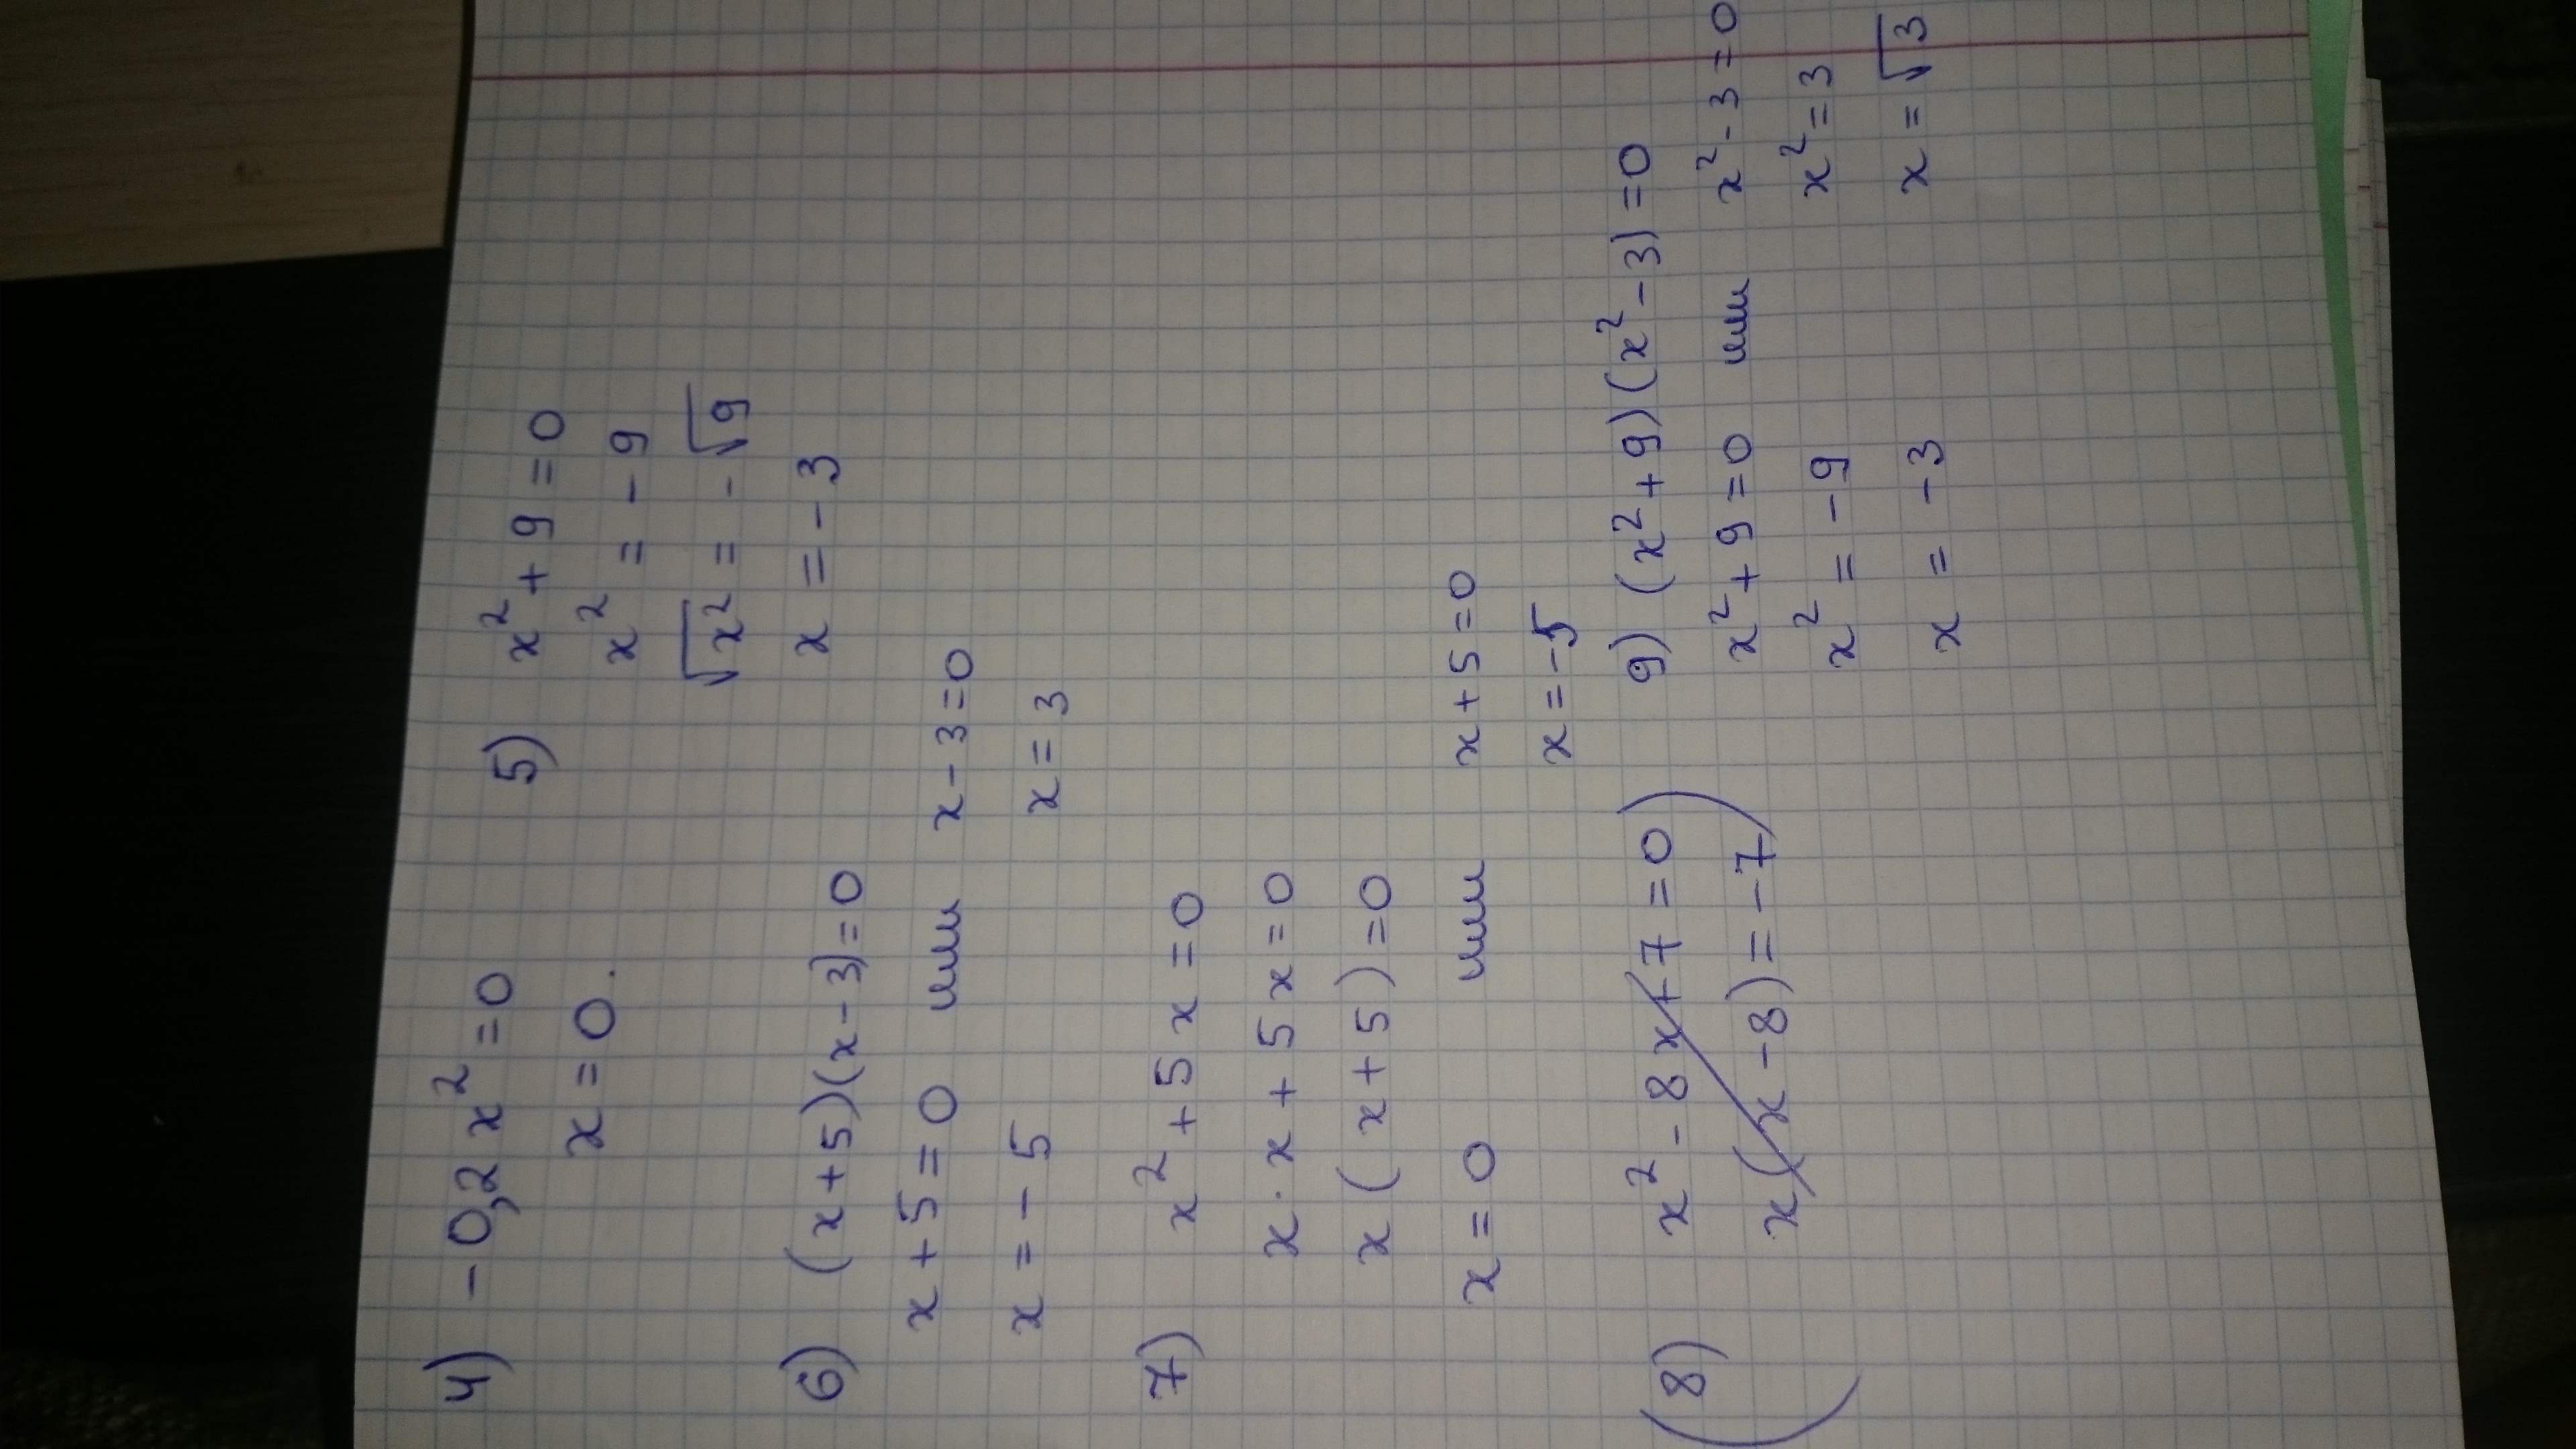 4) -0,2x² = 0
x = 0.
5) x² + 9 = 0
x² = -9
√x² = -√9
x = -3
6) (x+5)(x-3)=0
x+5=0 или x-3=0
x = -5 x = 3
7) x² + 5x = 0
x·x + 5x = 0
x(x+5)=0
x = 0 или x+5=0
x=-5
(8) x² - 8x + 7 = 0)
x(x-8) = -7
9) (x²+9)(x²-3)=0
x²+9=0 или x²-3=0
x² = -9 x² = 3
x = -3 x = √3